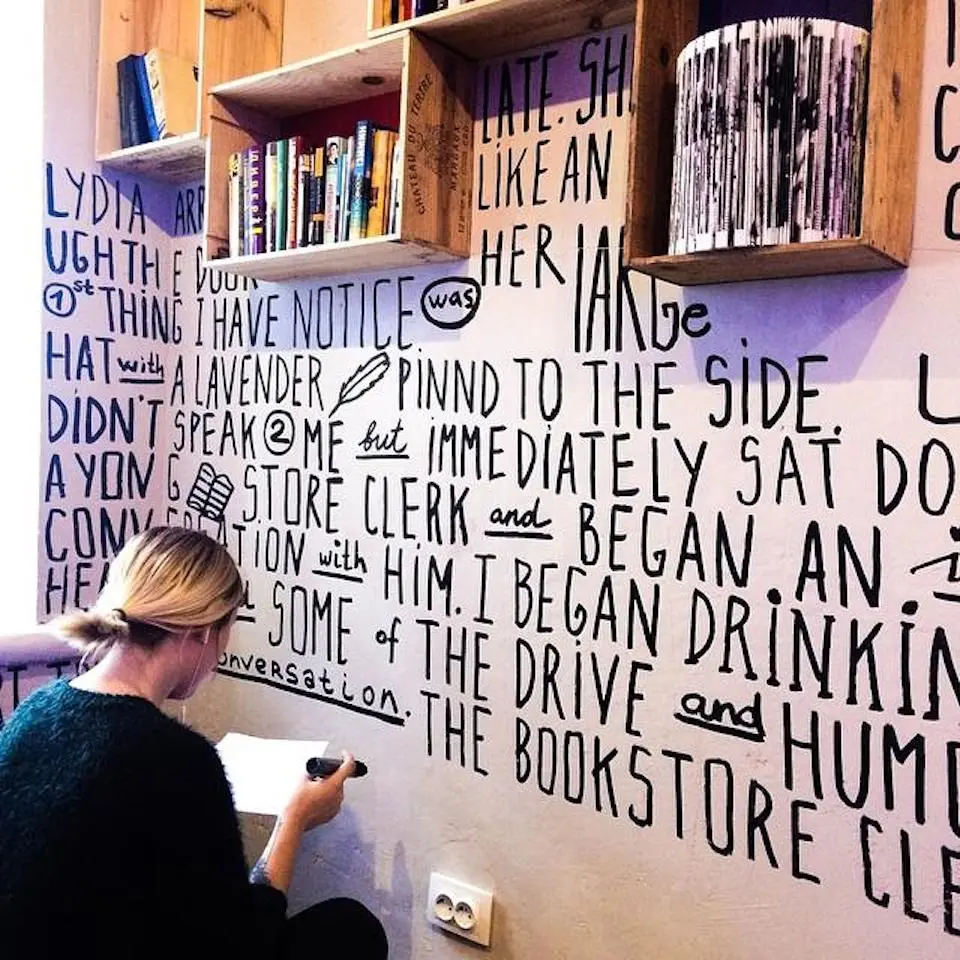 LATE. SH
LIKE AN
LYDIA ARR HER
UGH THE DOOR
1st THING I HAVE NOTICE was lARGe
HAT with A LAVENDER PINND TO THE SIDE. L
DIDN'T SPEAK 2 ME but IMMEDIATELY SAT DO
A YONG STORE CLERK and BEGAN AN i
CONV ATION with HIM. I BEGAN DRINKIN
HEA SOME of THE DRIVE and HUMO
onversation. THE BOOKSTORE CLE
CHATEAU DU TERTRE
MARGAUX